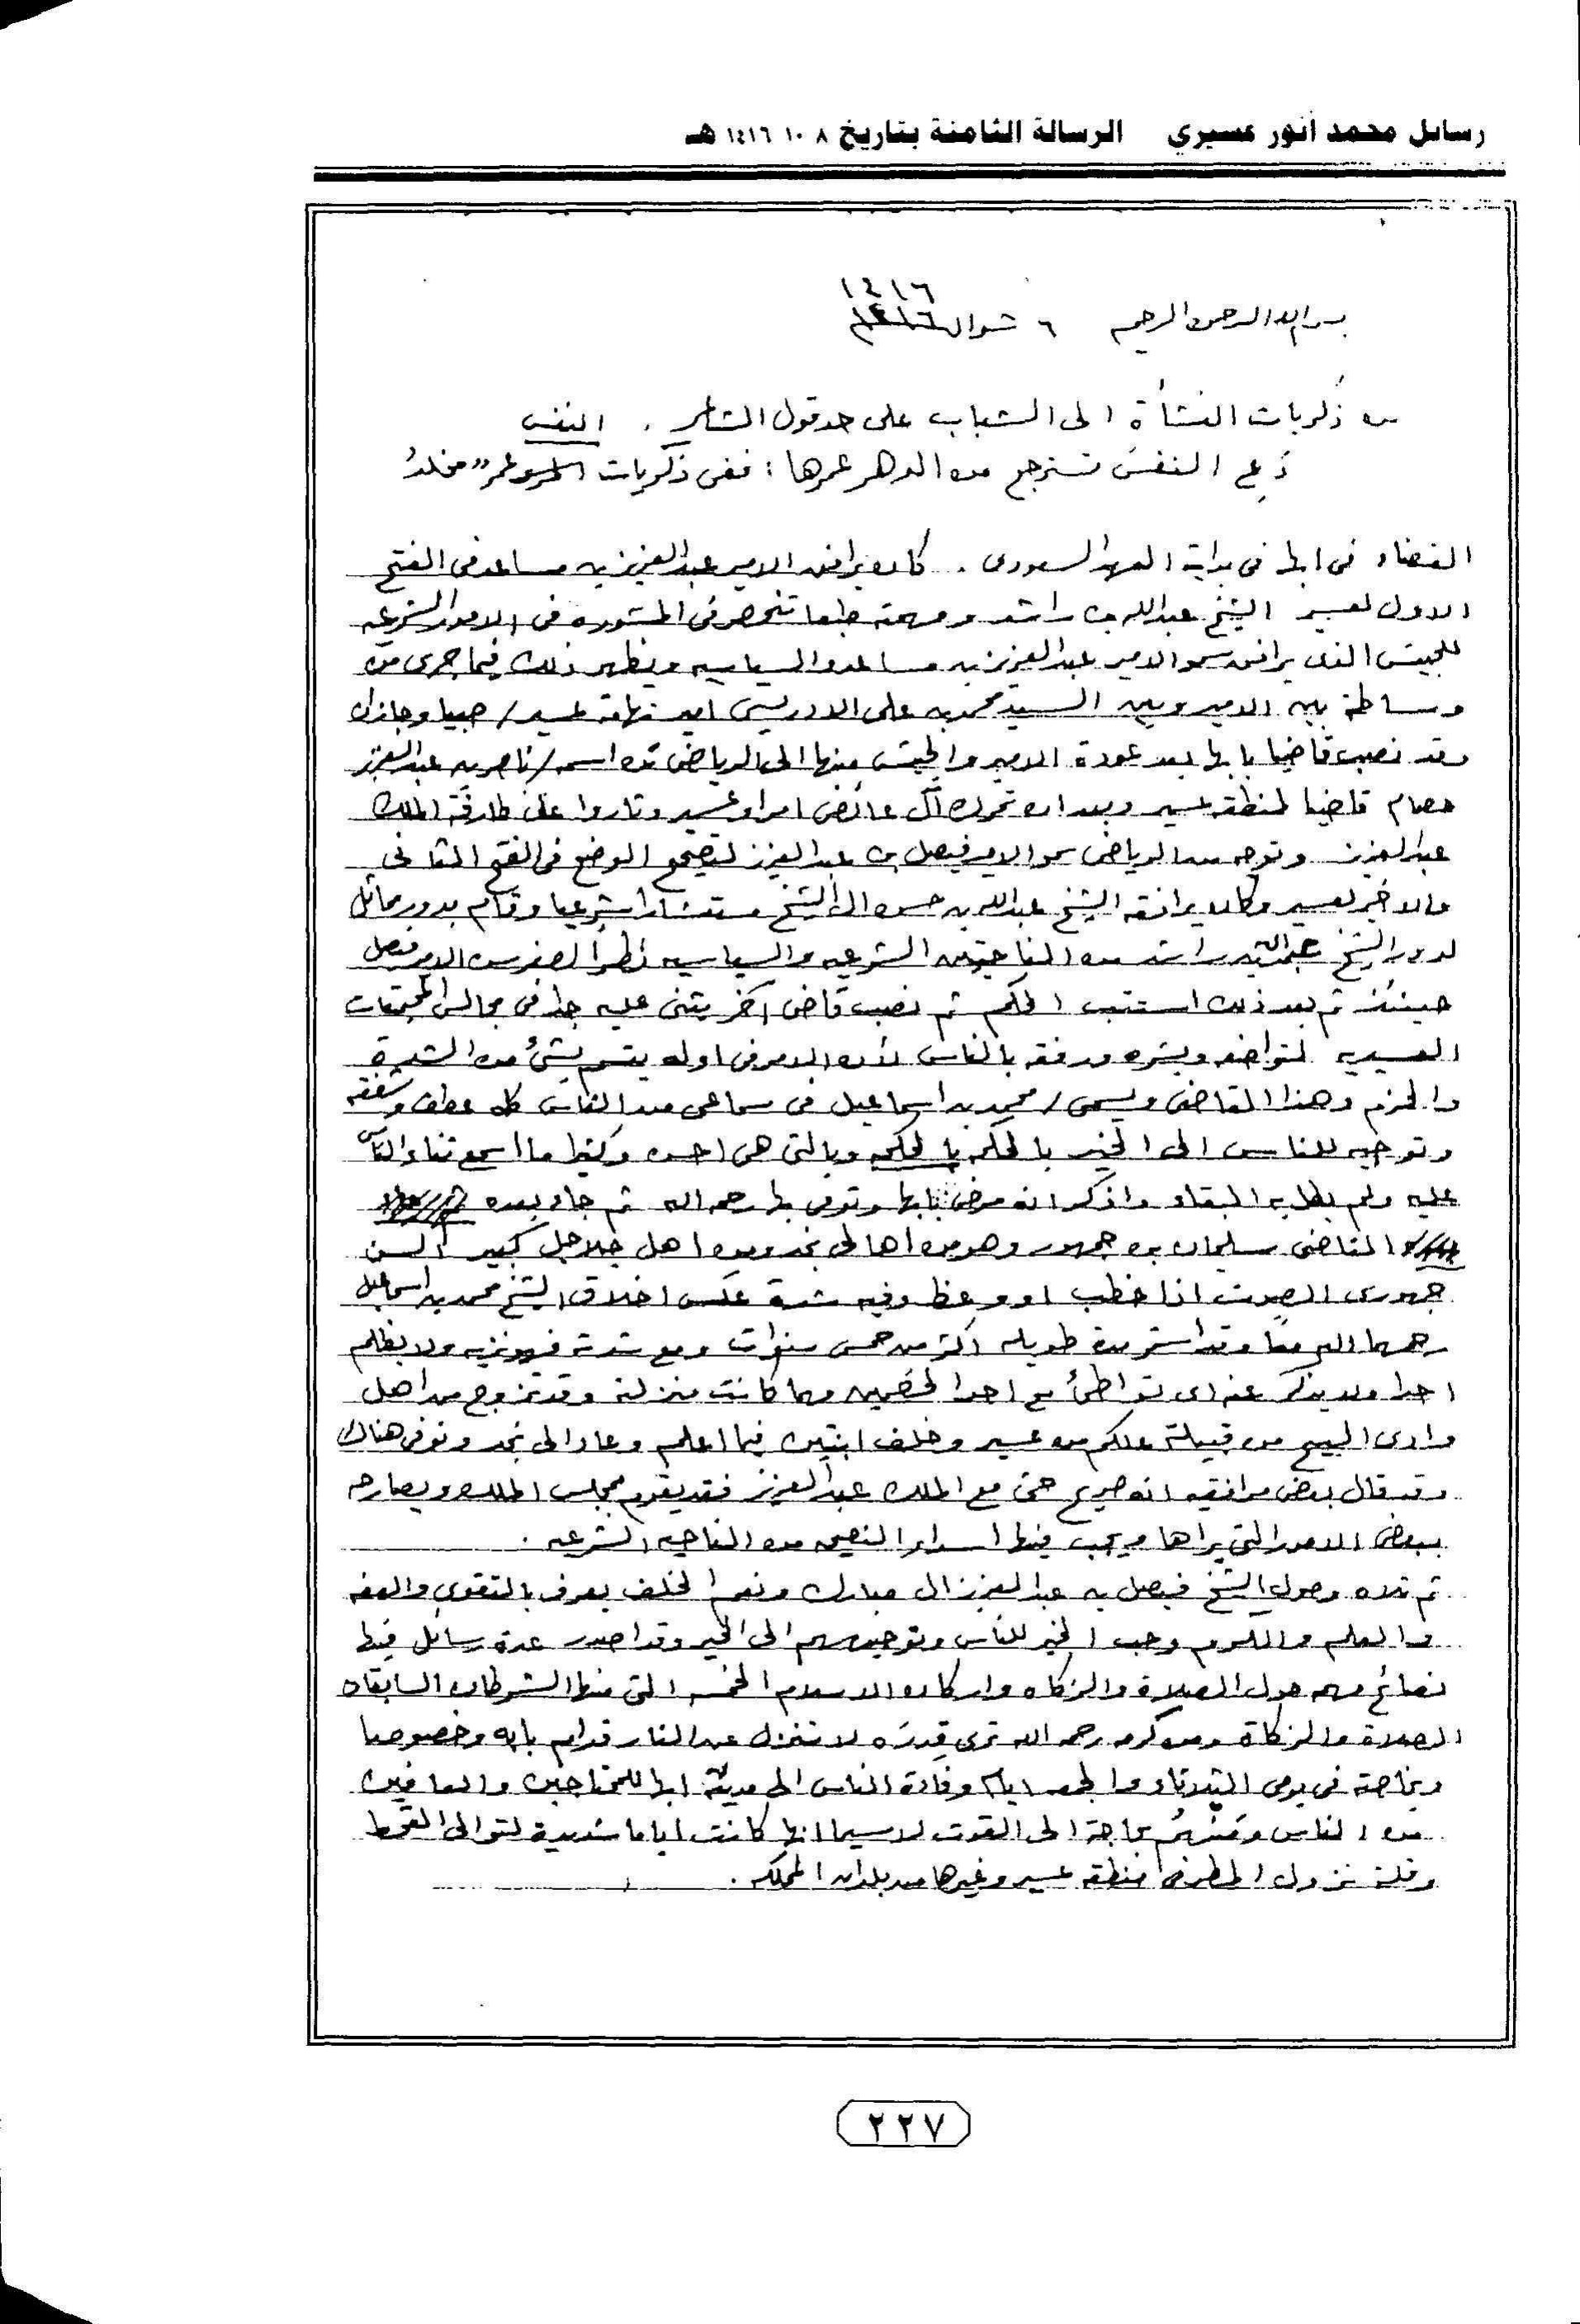 رسائل محمد أنور عسيري الرسالة الثامنة بتاريخ ٨ ١٠ ١٤١٦ هـ
١٤١٦
بسم الله الرحمن الرحيم ٦ شوال
من ذكريات النشأة الى الشباب على حد قول الشاعر . النفس
دَعِ النفسَ تسترجع من الدهر عمرها : ففى ذكريات عمر مخلدُ
القضاء فى ابها فى بداية العهد السعودى . كان يرافق الامير عبد العزيز بن مساعد فى الفتح
الاول لعسير الشيخ عبد الله بن راشد ومهمته طبعا تنحصر فى المشوره فى الامور الشرعيه
للجيش الذى يرافق سمو الامير عبد العزيز بن مساعد والسياسيه ويظهر ذلك فيما جرى من
وساطة بين الامير وبين السيد محمد بن على الادريسى امير تهامة عسير / صبيا وجازان
وقد نصب قاضيا بابها بعد عودة الامير والجيش منها الى الرياض من اسمه / ناصر بن عبد العزيز
حصام قاضيا لمنطقة عسير وبعد ان تحرك آل عائض امراء عسير وثاروا على طارفة الملك
عبد العزيز وتوجه من الرياض سمو الامير فيصل بن عبد العزيز لتصحيح الوضع فى الفتح الثانى
والاخير لعسير وكان يرافقه الشيخ عبد الله بن حسن ال الشيخ مستشارا شرعيا وقام بدور مماثل
لدور الشيخ عبد الله بن راشد من الناحيتين الشرعيه والسياسيه نظراً لصغر سن الامير فيصل
حينئذ ثم بعد ذلك استتب الحكم ثم نصب قاضى آخر يثنى عليه جدا فى مجالس المجتمعات
العسيريه لتواضعه ويسره ورفقه بالناس لأن الامر فى اوله يتسم بشئ من الشدة
والحزم وهذا القاضى ويسمى / محمد بن اسماعيل فى سماعى من الناس كله عطف وشفقه
وتوجيه للناس الى الخير بالحكمه بالحكمه وبالتى هى احسن وكثيرا ما اسمع ثناء الناس
عليه ولم يطل به البقاء واذكر انه مرض بابها وتوفى بها رحمه الله ثم جاء بعده
القاضى سليمان بن جمهور وهو من اهالى نجد ومن اهل جلاجل كبير السن
جهورى الصوت اذا خطب او وعظ وفيه شدة عكس اخلاق الشيخ محمد بن اسماعيل
رحمهما الله معاً وقد استمر مدة طويله اكثر من خمس سنوات ومع شدته فهو نزيه ولا يظلم
احدا ولا يذكر عنه اى تواطئ مع احد الخصمين مهما كانت منزلته وقد تزوج من اهل
وادى البيح من قبيلة علكم من عسير وخلف ابنتين فيما اعلم وعاد الى نجد وتوفى هناك
وقد قال بعض مرافقيه انه صريح حتى مع الملك عبد العزيز فقد يقوم مجلس الملك ويصارحه
ببعض الامور التى يراها ويجب فيها اسداء النصيحه من الناحيه الشرعيه .
ثم تلاه وصول الشيخ فيصل بن عبد العزيز ال مبارك ونعم الخلف يعرف بالتقوى والعفه
والعلم والكرم وحب الخير للناس وتوجيههم الى الخير وقد اصدر عدة رسائل فيها
نصائح مهمه حول الصلاة والزكاه واركان الاسلام الخمسه التى منها الشرطان السابقان
الصلاة والزكاة ومن كرمه رحمه الله ترى قِدرَه لا تنزل عن النار قدام بابه وخصوصا
وبخاصة فى يومى الثلاثاء والجمعه ايام وفادة الناس الى مدينة ابها للمحتاجين والعافين
من الناس ومَنْ هُم بحاجة الى القوت لاسيما انها كانت اياما شديدة لتوالى القحط
وقلة نزول المطر فى منطقة عسير وغيرها من بلدان المملكه .
٢٢٧